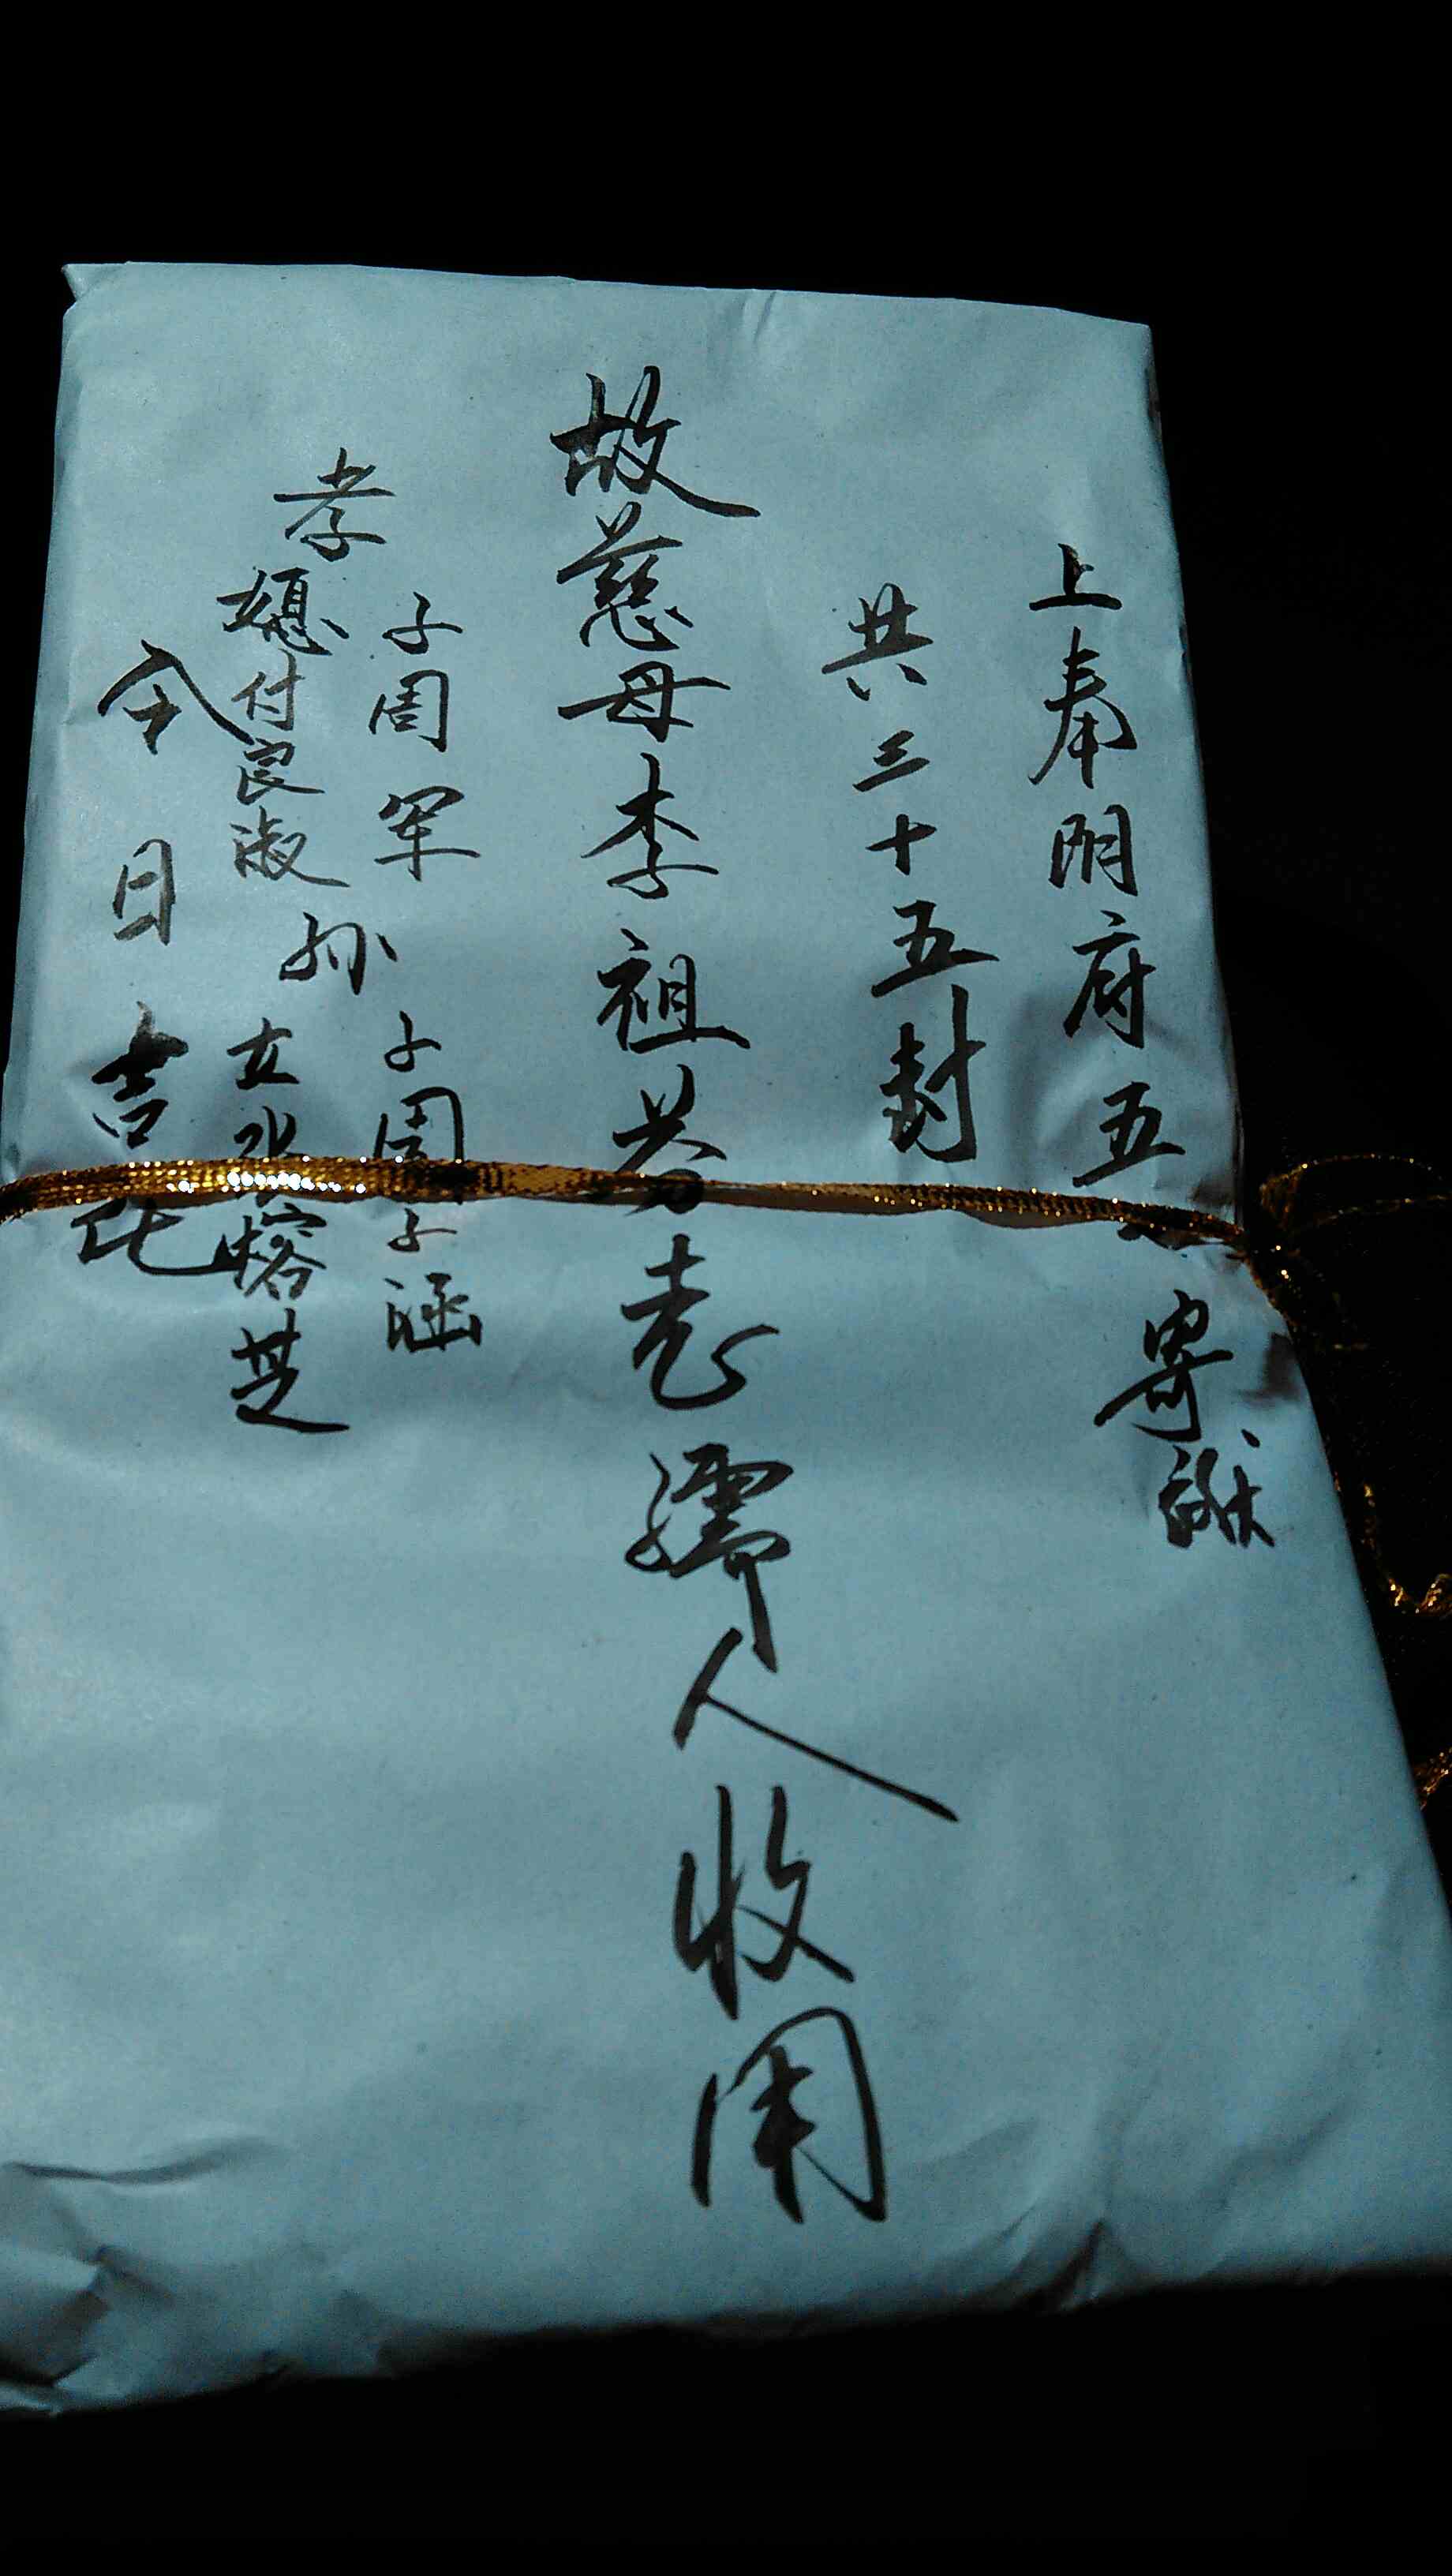 上奉阴府五 寄献
共三十五封
故慈母李祖芬老孺人收用
孝
子周军
媳付良淑
孙
子周子涵
女 熔芝
今日吉化